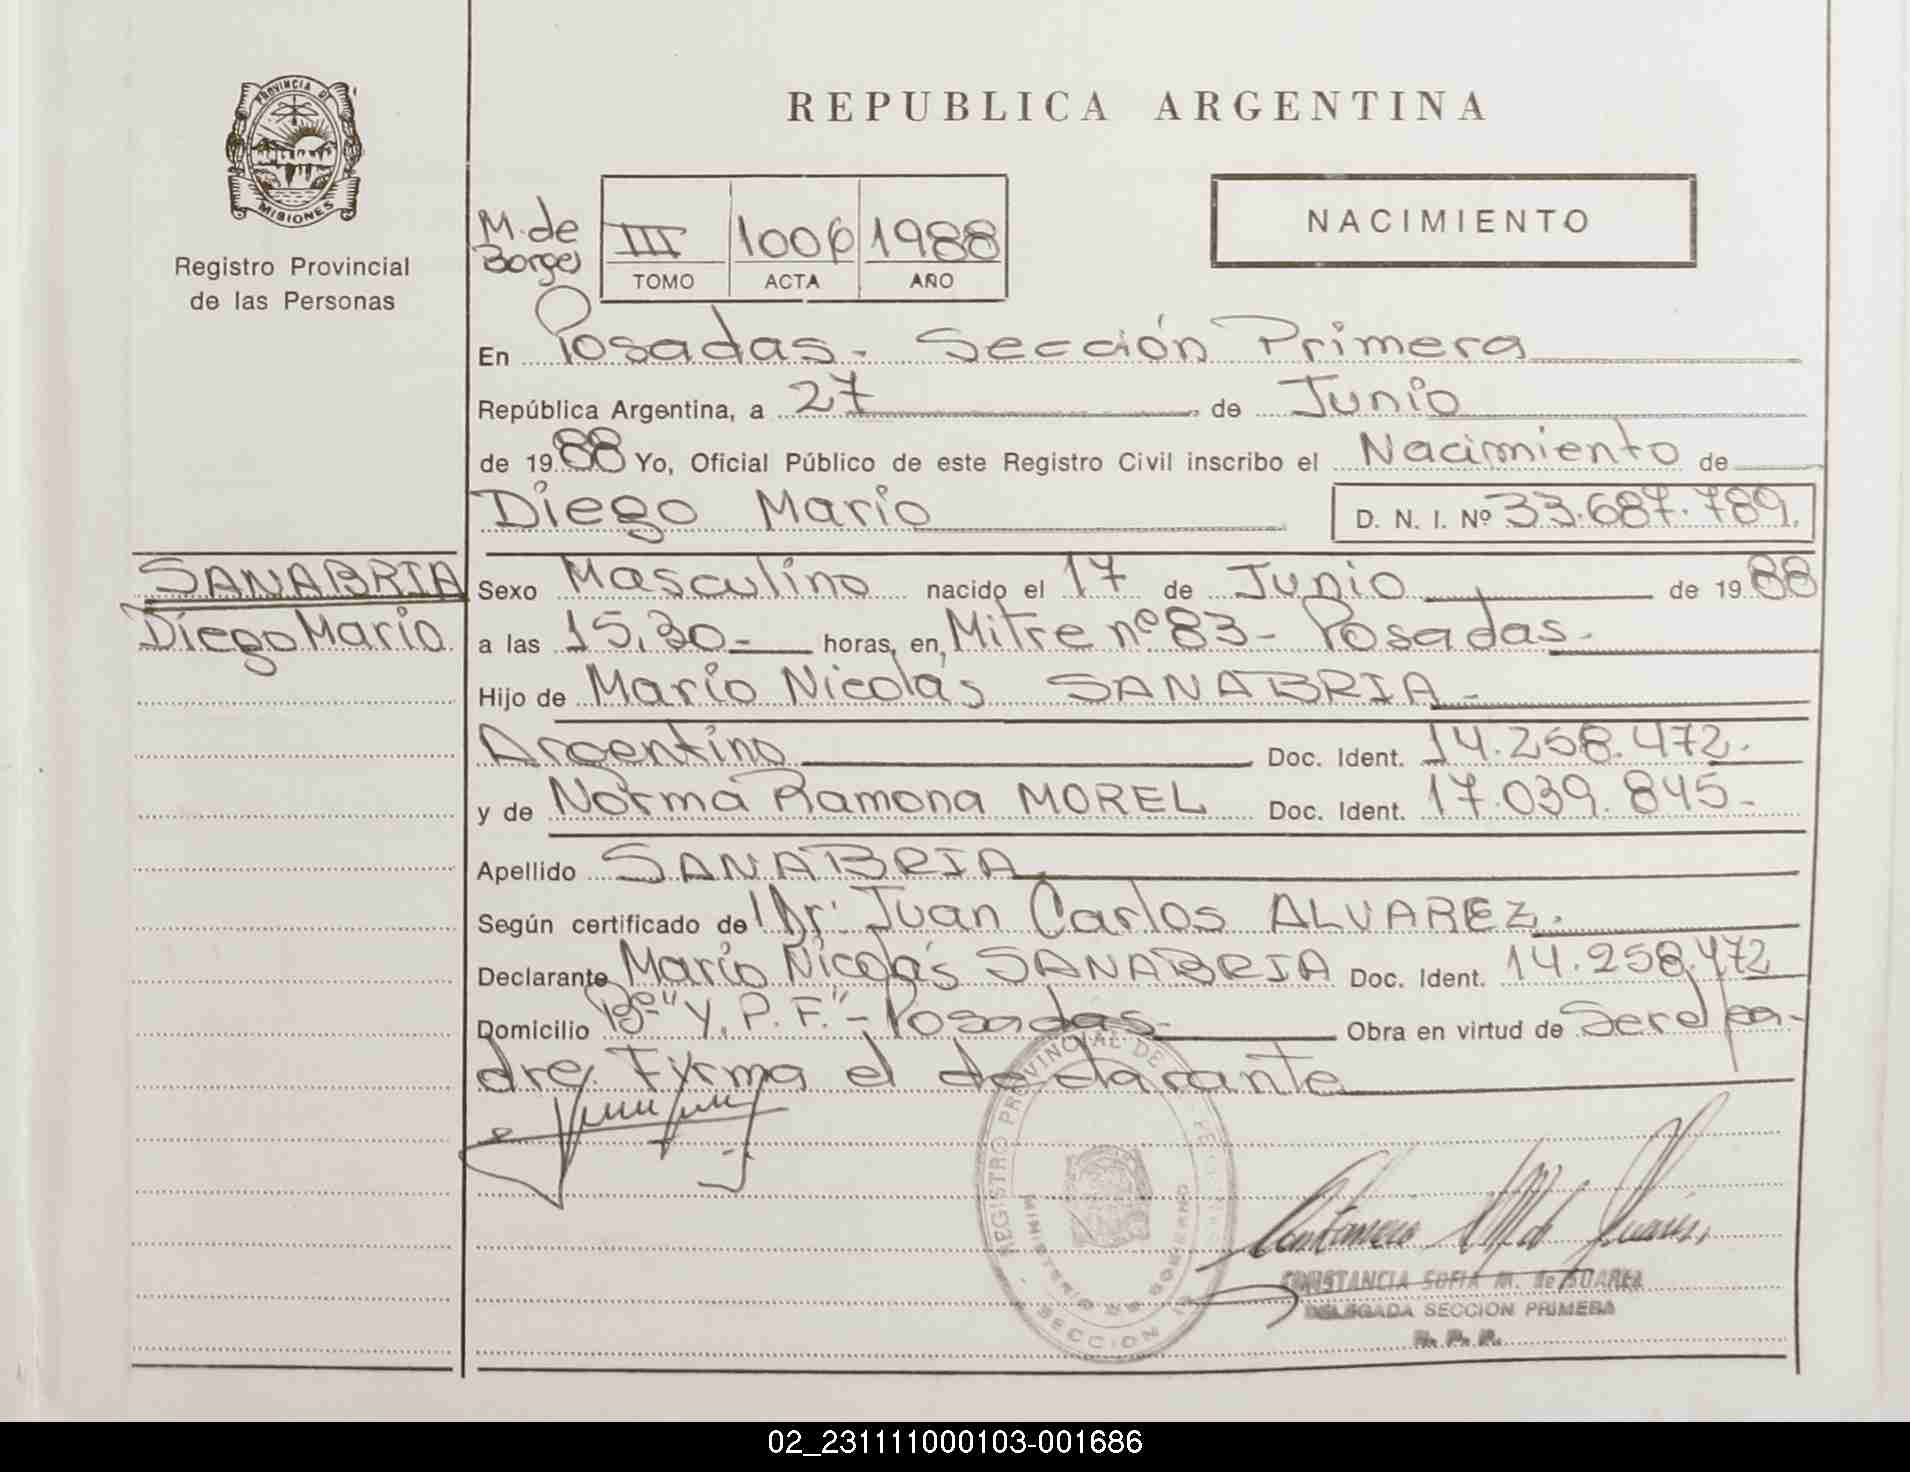 PROVINCIA DE
MISIONES
Registro Provincial
de las Personas
REPUBLICA ARGENTINA
NACIMIENTO
M. de
Borges
III 1006 1988
TOMO ACTA AÑO
En Posadas - Sección Primera
República Argentina, a 27 de Junio
de 1988 Yo, Oficial Público de este Registro Civil inscribo el Nacimiento de
Diego Mario D. N. I. Nº 33.687.789.
SANABRIA
Diego Mario
Sexo Masculino nacido el 17 de Junio de 1988
a las 15,30- horas, en Mitre nº 83- Posadas-
Hijo de Mario Nicolás SANABRIA-
Argentino Doc. Ident. 14.258.472.
y de Norma Ramona MOREL Doc. Ident. 17.039.845-
Apellido SANABRIA
Según certificado de Dr. Juan Carlos ALVAREZ.
Declarante Mario Nicolás SANABRIA Doc. Ident. 14.258.472
Domicilio Bº "Y.P.F." - Posadas- Obra en virtud de Ser el pa-
dre. Firma el declarante
REGISTRO PROVINCIAL DE
MINISTERIO DE GOBIERNO
SECCION
CONSTANCIA SOFIA M. de SUAREZ
DELEGADA SECCION PRIMERA
R. P. P.
02_231111000103-001686